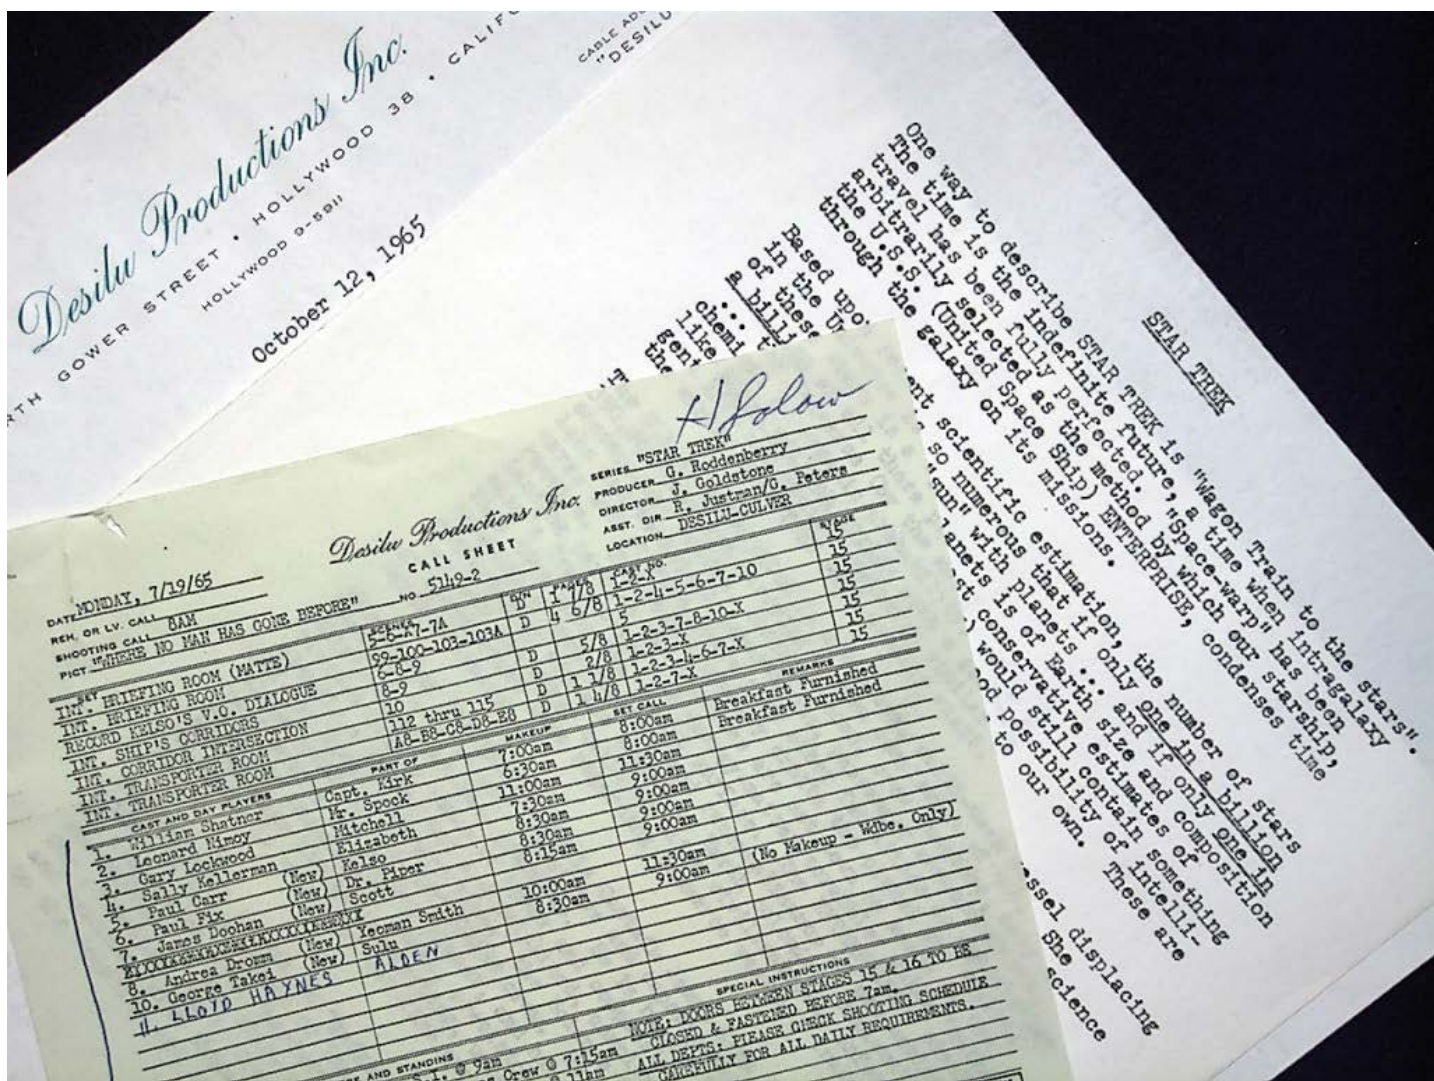 Desilu Productions Inc.
GOWER STREET • HOLLYWOOD 38 •
HOLLYWOOD 9-5911
CABLE
"DESILU
October 12, 1965
STAR TREK
One way to describe STAR TREK is "Wagon Train to the stars".
The time is the indefinite future, a time when intragalaxy
travel has been fully perfected. "Space-warp" has been
arbitrarily selected as the method by which our starship,
the U.S.S. (United Space Ship) ENTERPRISE, condenses time
through the galaxy on its missions.
Based upo
ent scientific estimation, the number of stars
in the Un
so numerous that if only one in a billion
of these
"sun" with planets ... and if only one in
a billi
anets is of Earth size and composition
st conservative estimates of
chemi
would still contain something
like
possibility of intelli-
gent
to our own. These are
the
essel displacing
She
science
H Solow
Desilu Productions Inc.
CALL SHEET
NO. 5149-2
SERIES "STAR TREK"
PRODUCER G. Roddenberry
DIRECTOR J. Goldstone
ASST. DIR R. Justman/G. Peters
LOCATION DESILU-CULVER
DATE MONDAY, 7/19/65
REH. OR LV. CALL
SHOOTING CALL 8AM
PICT "WHERE NO MAN HAS GONE BEFORE"
SET D/N PAGES CAST NO. STAGE
INT. BRIEFING ROOM (MATTE) 5-6-X7-7A D 1 7/8 1-2-X 15
INT. BRIEFING ROOM 99-100-103-103A D 4 6/8 1-2-4-5-6-7-10 15
RECORD KELSO'S V.O. DIALOGUE 5 15
INT. SHIP'S CORRIDORS D 5/8 1-2-3-7-8-10-X 15
INT. CORRIDOR INTERSECTION 10 D 2/8 1-2-3-X 15
INT. TRANSPORTER ROOM 112 thru 115 D 1 1/8 1-2-3-4-6-7-X 15
INT. TRANSPORTER ROOM A8-B8-C8-D8-E8 D 1 4/8 1-2-7-X 15
CAST AND DAY PLAYERS PART OF MAKEUP SET CALL REMARKS
1. William Shatner Capt. Kirk 7:00am 8:00am Breakfast Furnished
2. Leonard Nimoy Mr. Spock 6:30am 8:00am Breakfast Furnished
3. Gary Lockwood Mitchell 11:00am 11:30am
4. Sally Kellerman Elizabeth 7:30am 9:00am
5. Paul Carr (New) Kelso 8:30am 9:00am
6. Paul Fix (New) Dr. Piper 8:30am 9:00am
7. James Doohan (New) Scott 8:15am 9:00am
8. Andrea Dromm (New) Yeoman Smith 10:00am 11:30am (No Makeup - Wdbe. Only)
10. George Takei (New) Sulu 8:30am 9:00am
11. LLOYD HAYNES ALDEN
SPECIAL INSTRUCTIONS
NOTE: DOORS BETWEEN STAGES 15 & 16 TO BE
CLOSED & FASTENED BEFORE 7am.
ALL DEPTS: PLEASE CHECK SHOOTING SCHEDULE
CAREFULLY FOR ALL DAILY REQUIREMENTS.
AND STANDINS
@ 9am
Crew @ 7:15am
@ 11am